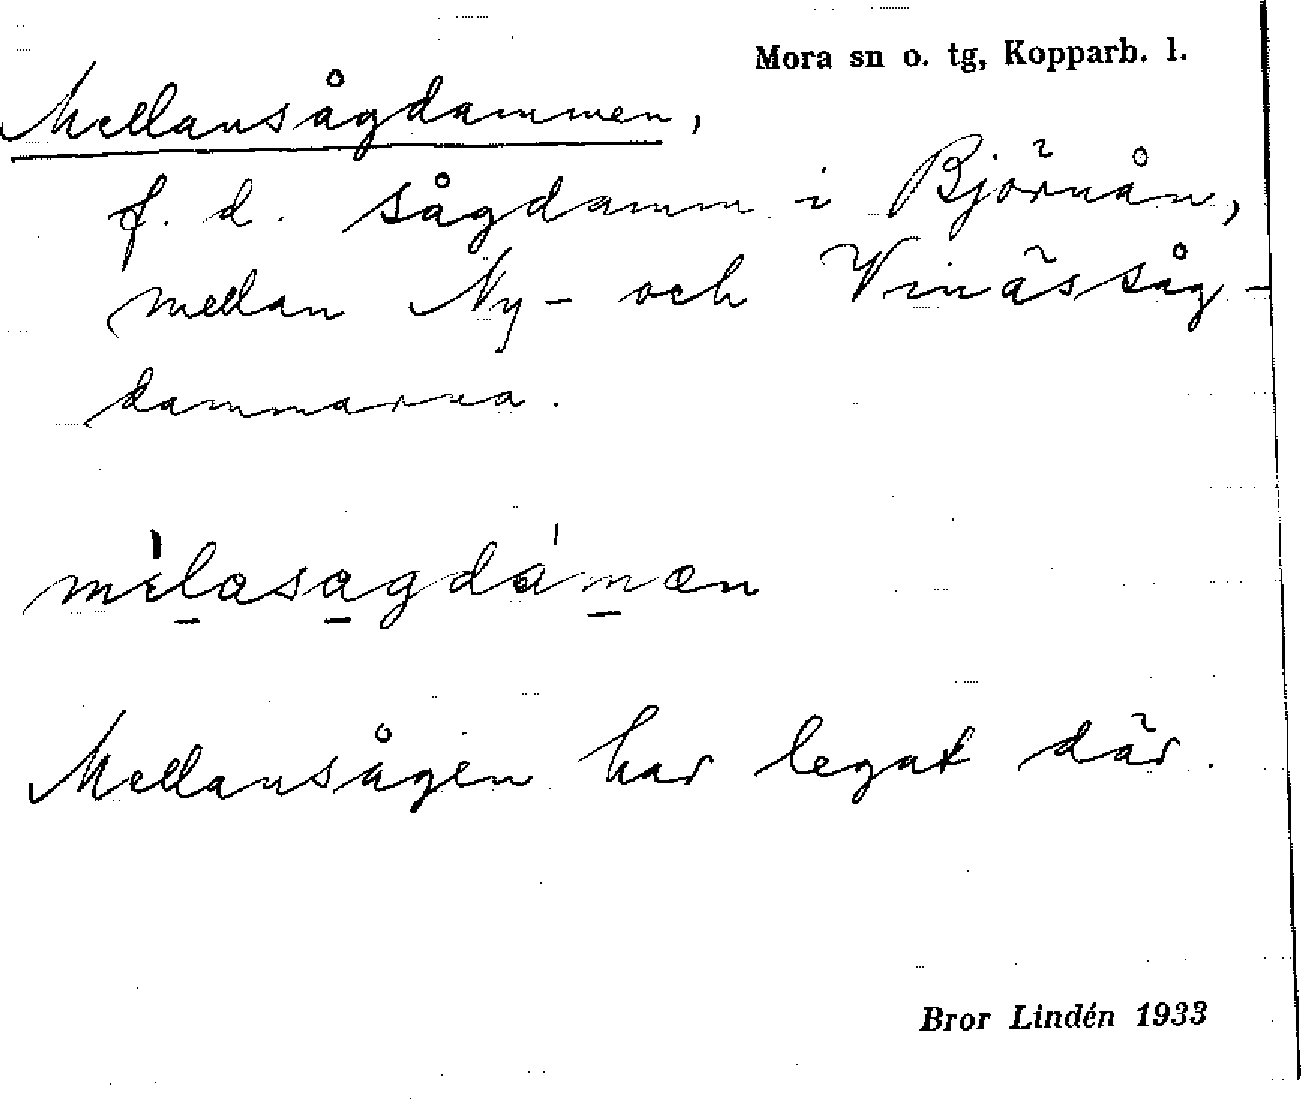 Mora sn o. tg, Kopparb. l.
Mellansågdammen,
f. d. sågdamm i Björnån,
mellan Ny- och Vinässåg-
dammarna.
mìlasagdámæn
Mellansågen har legat där.
Bror Lindén 1933